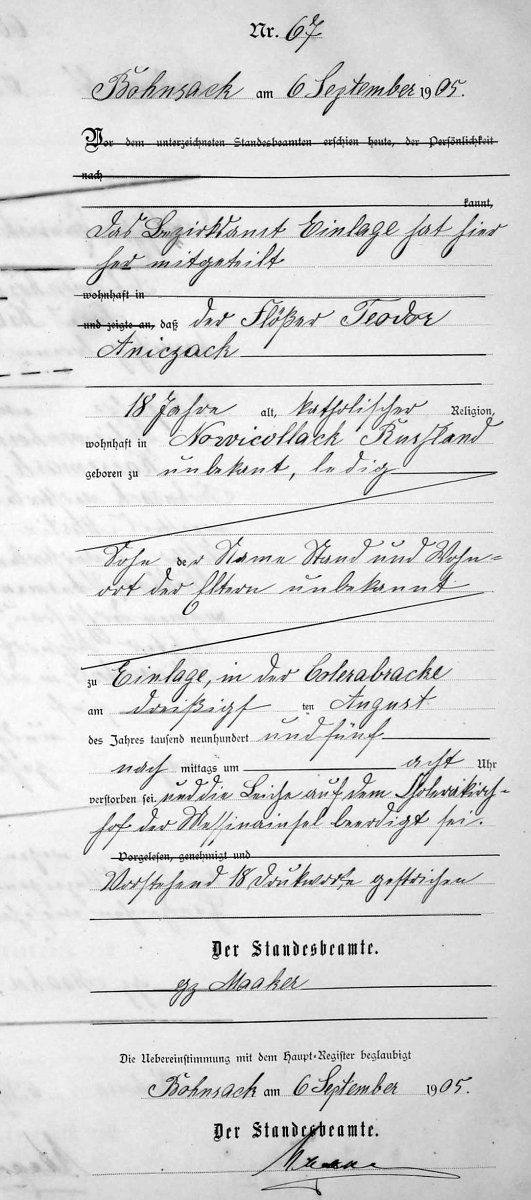 Nr. 67
Bohnsack am 6 September 1905.
Vor dem unterzeichneten Standesbeamten erschien heute, der Persönlichkeit
nach
kannt,
das Bezirksamt Einlage hat hier
her mitgeteilt
wohnhaft in
und zeigte an, daß der Flößer Teodor
Aniczack
18 Jahre alt, katholischer Religion,
wohnhaft in Nowicollack Rußland
geboren zu unbekant, ledig
Sohn der Name Stand und Wohn-
ort der Eltern unbekannt
zu Einlage, in der Colerabracke
am dreißigst ten August
des Jahres tausend neunhundert und fünf
nach mittags um acht Uhr
verstorben sei und die Leiche auf dem Cholerakirch-
hof der Messinainsel beerdigt sei.
Vorgelesen, genehmigt und
Vorstehend 18 Druckworte gestrichen
Der Standesbeamte.
gz Maaker
Die Uebereinstimmung mit dem Haupt-Register beglaubigt
Bohnsack am 6 September 1905.
Der Standesbeamte.